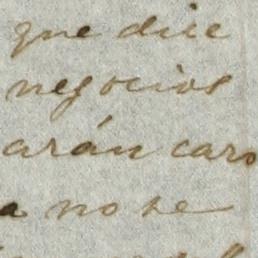 que dice
negocios
arán caro
a no se